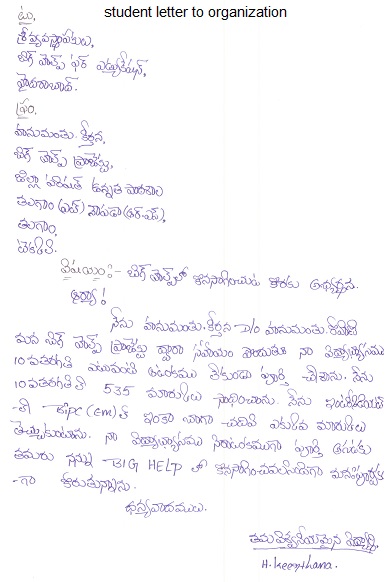 student letter to organization
టు,
శ్రీ వ్యవస్థాపకులు,
బిగ్ హెల్ప్ ఫర్ ఎడ్యుకేషన్,
హైదరాబాద్.
ఫ్రం,
హనుమంతు. కీర్తన,
బిగ్ హెల్ప్ ప్రాజెక్టు,
జిల్లా పరిషత్ ఉన్నత పాఠశాల
తుగాం,
విషయం:- బిగ్ హెల్ప్ లో కొనసాగించుట కొరకు అభ్యర్థన.
ఆర్యా!
నేను హనుమంతు. కీర్తన D/o హనుమంతు.
మన బిగ్ హెల్ప్ ప్రాజెక్టు ద్వారా సహాయం పొందుతూ నా విద్యాభ్యాసము
10వ తరగతి ఎటువంటి ఆటంకము లేకుండా పూర్తి చేశాను. నేను
10వ తరగతి లో 535 మార్కులు సాధించాను. నేను ఇంటర్మీడియట్
-లో BiPC (EM) లో ఇంకా బాగా చదివి ఎక్కువ మార్కులు
తెచ్చుకుంటాను. నా విద్యాభ్యాసము నిరాటంకముగా పూర్తి అగుటకు
తమరు నన్ను BIG HELP లో కొనసాగించవలసిందిగా మనస్ఫూర్తి
-గా కోరుతున్నాను.
ధన్యవాదములు.
తమ విశ్వసనీయమైన విద్యార్థి,
H. Keerthana.